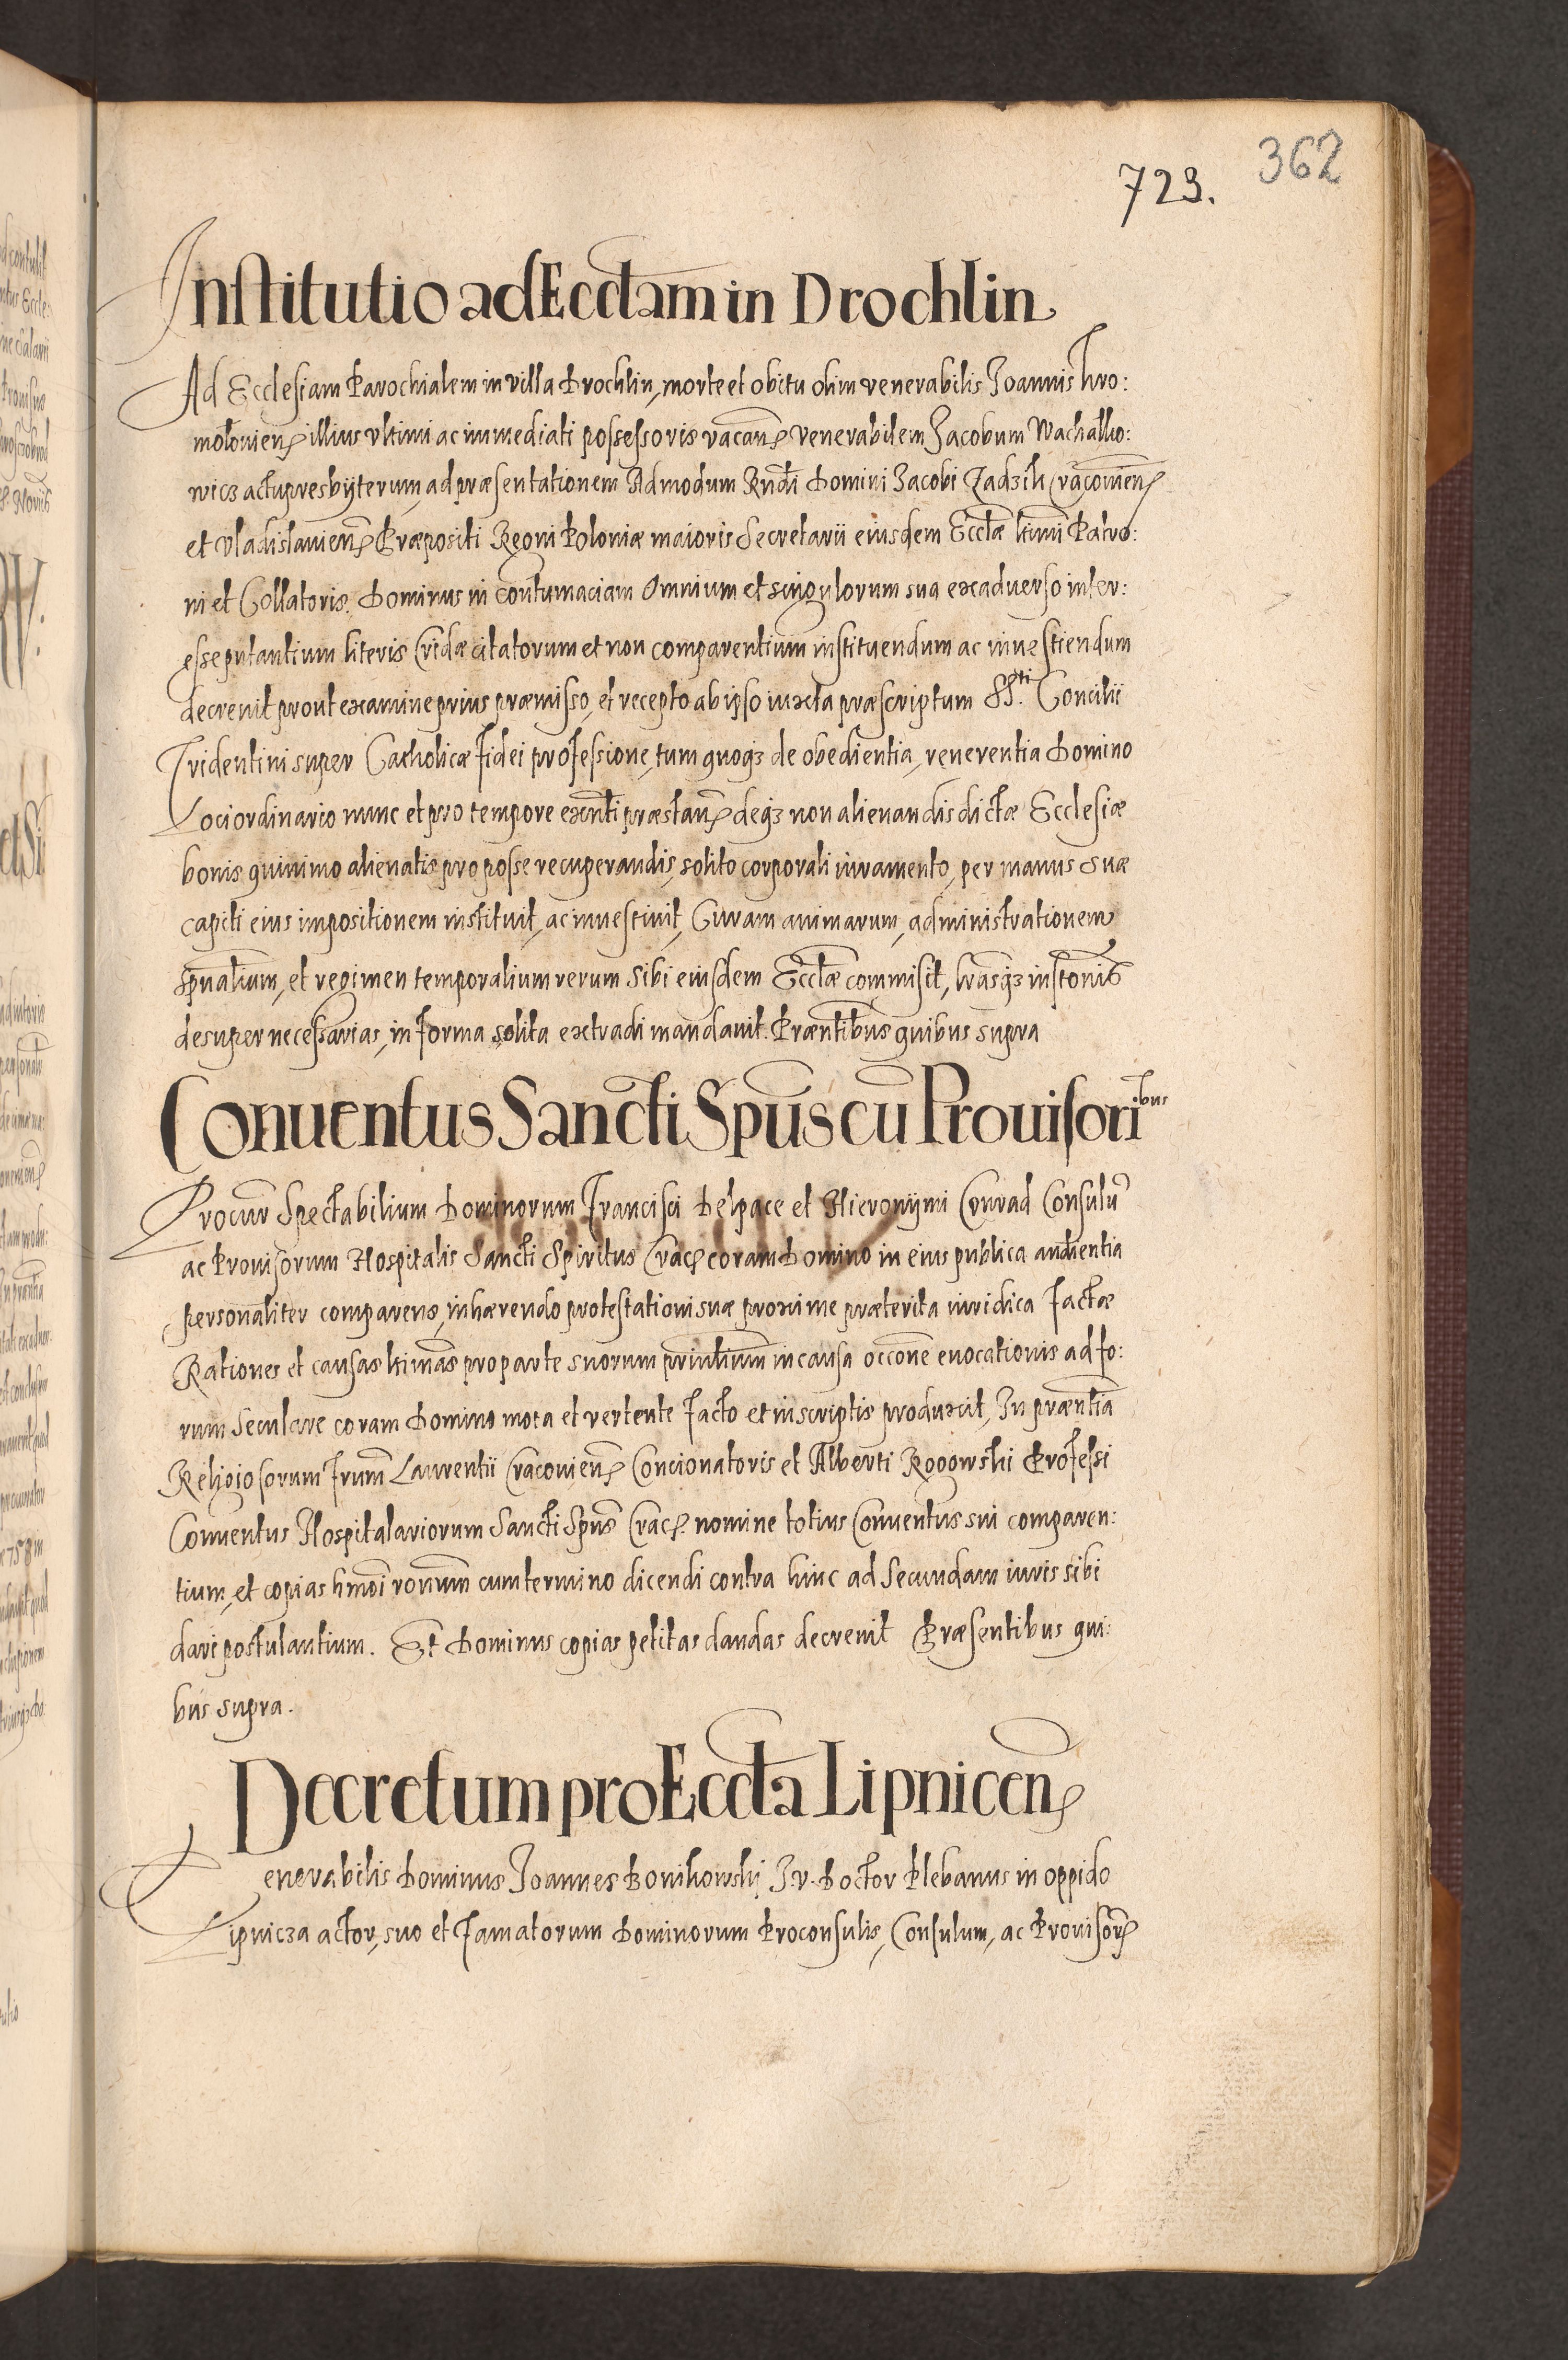 362
723.
Institutio ad Ecctam in Drochlin
Ad Ecclesiam Parochialem in villa Drochlin, morte et obitu olim venerabilis Joannis Thro:
moloviens illius ultimi ac immediati possessoris vacans venerabilem Jacobum Wachalko:
wicz actu presbyterum, ad præsentationem Admodum Rndi Domini Jacobi Zadzik Cracovien
et Vladislavien Præpositi Regni Poloniæ maioris Secretarii eiusdem Ecctæ ltimi Patro:
ni et Collatoris. Dominus in contumaciam Omnium et singulorum sua ex adverso inter:
esse putantium literis Cridæ citatorum et non comparentium instituendum ac investiendum
decrevit prout examine prius præmisso, et recepto ab ipso iuxta præscriptum SSti. Concilii
Tridentini super Catholicæ fidei professione, tum quoq3 de obedientia, reverentia Domino
Loci ordinario nunc et pro tempore exnti præstan deq3 non alienandis dictæ Ecclesiæ
bonis quinimo alienatis pro posse recuperandis, solito corporali iuramento, per manus suæ
capiti eius impositionem instituit, ac investivit, Curam animarum, administrationem
spualium, et regimen temporalium rerum sibi eiusdem Ecctæ commisit, lrasq3 instonis
desuper necessarias, in forma solita extradi mandavit. Præntibus quibus supra
Conuentus Sancti Spus cu Prouisoribus
Procur Spectabilium Dominorum Francisci Delpace et Hieronymi Conrad Consulu
ac Provisorum Hospitalis Sancti Spiritus Crac coram Domino in eius publica audientia
personaliter comparens, inhærendo protestationi suæ proxime præterita iuridica factæ
Rationes et causas ltimas pro parte suorum prinlium in causa occone evocationis ad fo:
rum seculare coram Domino mota et vertente facto et in scriptis produxit, In præntia
Religiosorum frum Laurentii Cracovien Concionatoris et Alberti Rogowski Professi
Conventus Hospitalariorum Sancti Spus Crac. nomine totius Conventus sui comparen:
tium, et copias hmoi ronum cum termino dicendi contra hinc ad secundam iuris sibi
dari postulantium. Et Dominus copias petitas dandas decrevit Præsentibus qui:
bus supra.
Decretum pro Eccta Lipnicen
Venerabilis Dominus Joannes Bonikowski J.v. Doctor Plebanus in oppido
Lipnicza actor, suo et famatorum Dominorum Proconsulis, Consulum, ac Provisor